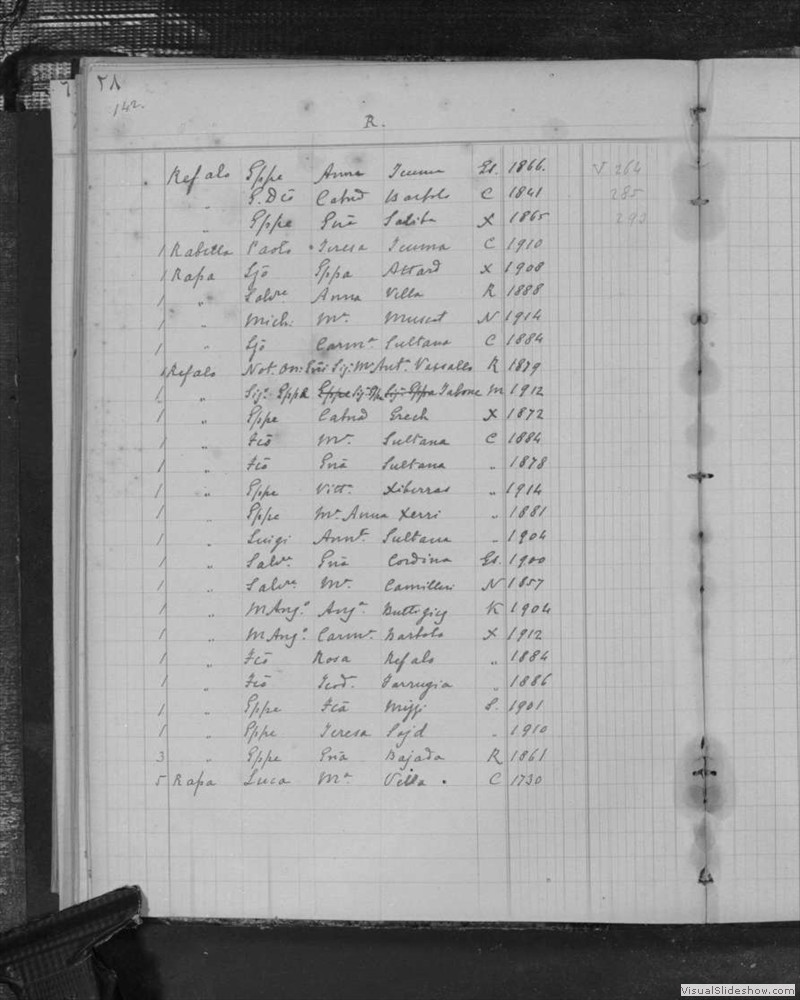 142.
R.
Refalo Gppe Anna Icuma Es. 1866. V 264
" G. Dto Catnd Bartolo C 1841 285
" Gppe Gnā Saliba X 1865 293
1 Rabella Paolo Teresa Icuma C 1910
1 Rapa Gjō Gppa Attard X 1908
1 " Salvre Anna Villa R 1888
1 " Mich. Ma. Muscat N 1914
1 " Gjō Carma. Sultana C 1884
1 Refalo Not. Sig. M. Anta. Vassallo R 1879
1 " Sig. Gppe Tabone M 1912
1 " Gppe Catnd Grech X 1872
1 " Fcō Ma. Sultana C 1884
1 " Fcō Gnā Sultana " 1878
1 " Gppe Vitt. Xiberras " 1914
1 " Gppe Ma. Anna Xerri " 1881
1 " Luigi Annta. Sultana " 1904
1 " Salvre. Gnā Cordina Es. 1900
1 " Salvre. Ma. Camilleri N 1857
1 " M Ang.o Ang.a Buttigieg K 1904
1 " M Ang.o Carma. Bartolo X 1912
1 " Fcō Rosa Refalo " 1884
1 " Fcō Teod. Farrugia " 1886
1 " Gppe Fcā Mizzi S. 1901
1 " Gppe Teresa Sajd " 1910
3 " Gppe Gnā Bajada R 1861
5 Rapa Luca Ma Villa . C 1730
VisualSlideshow.com